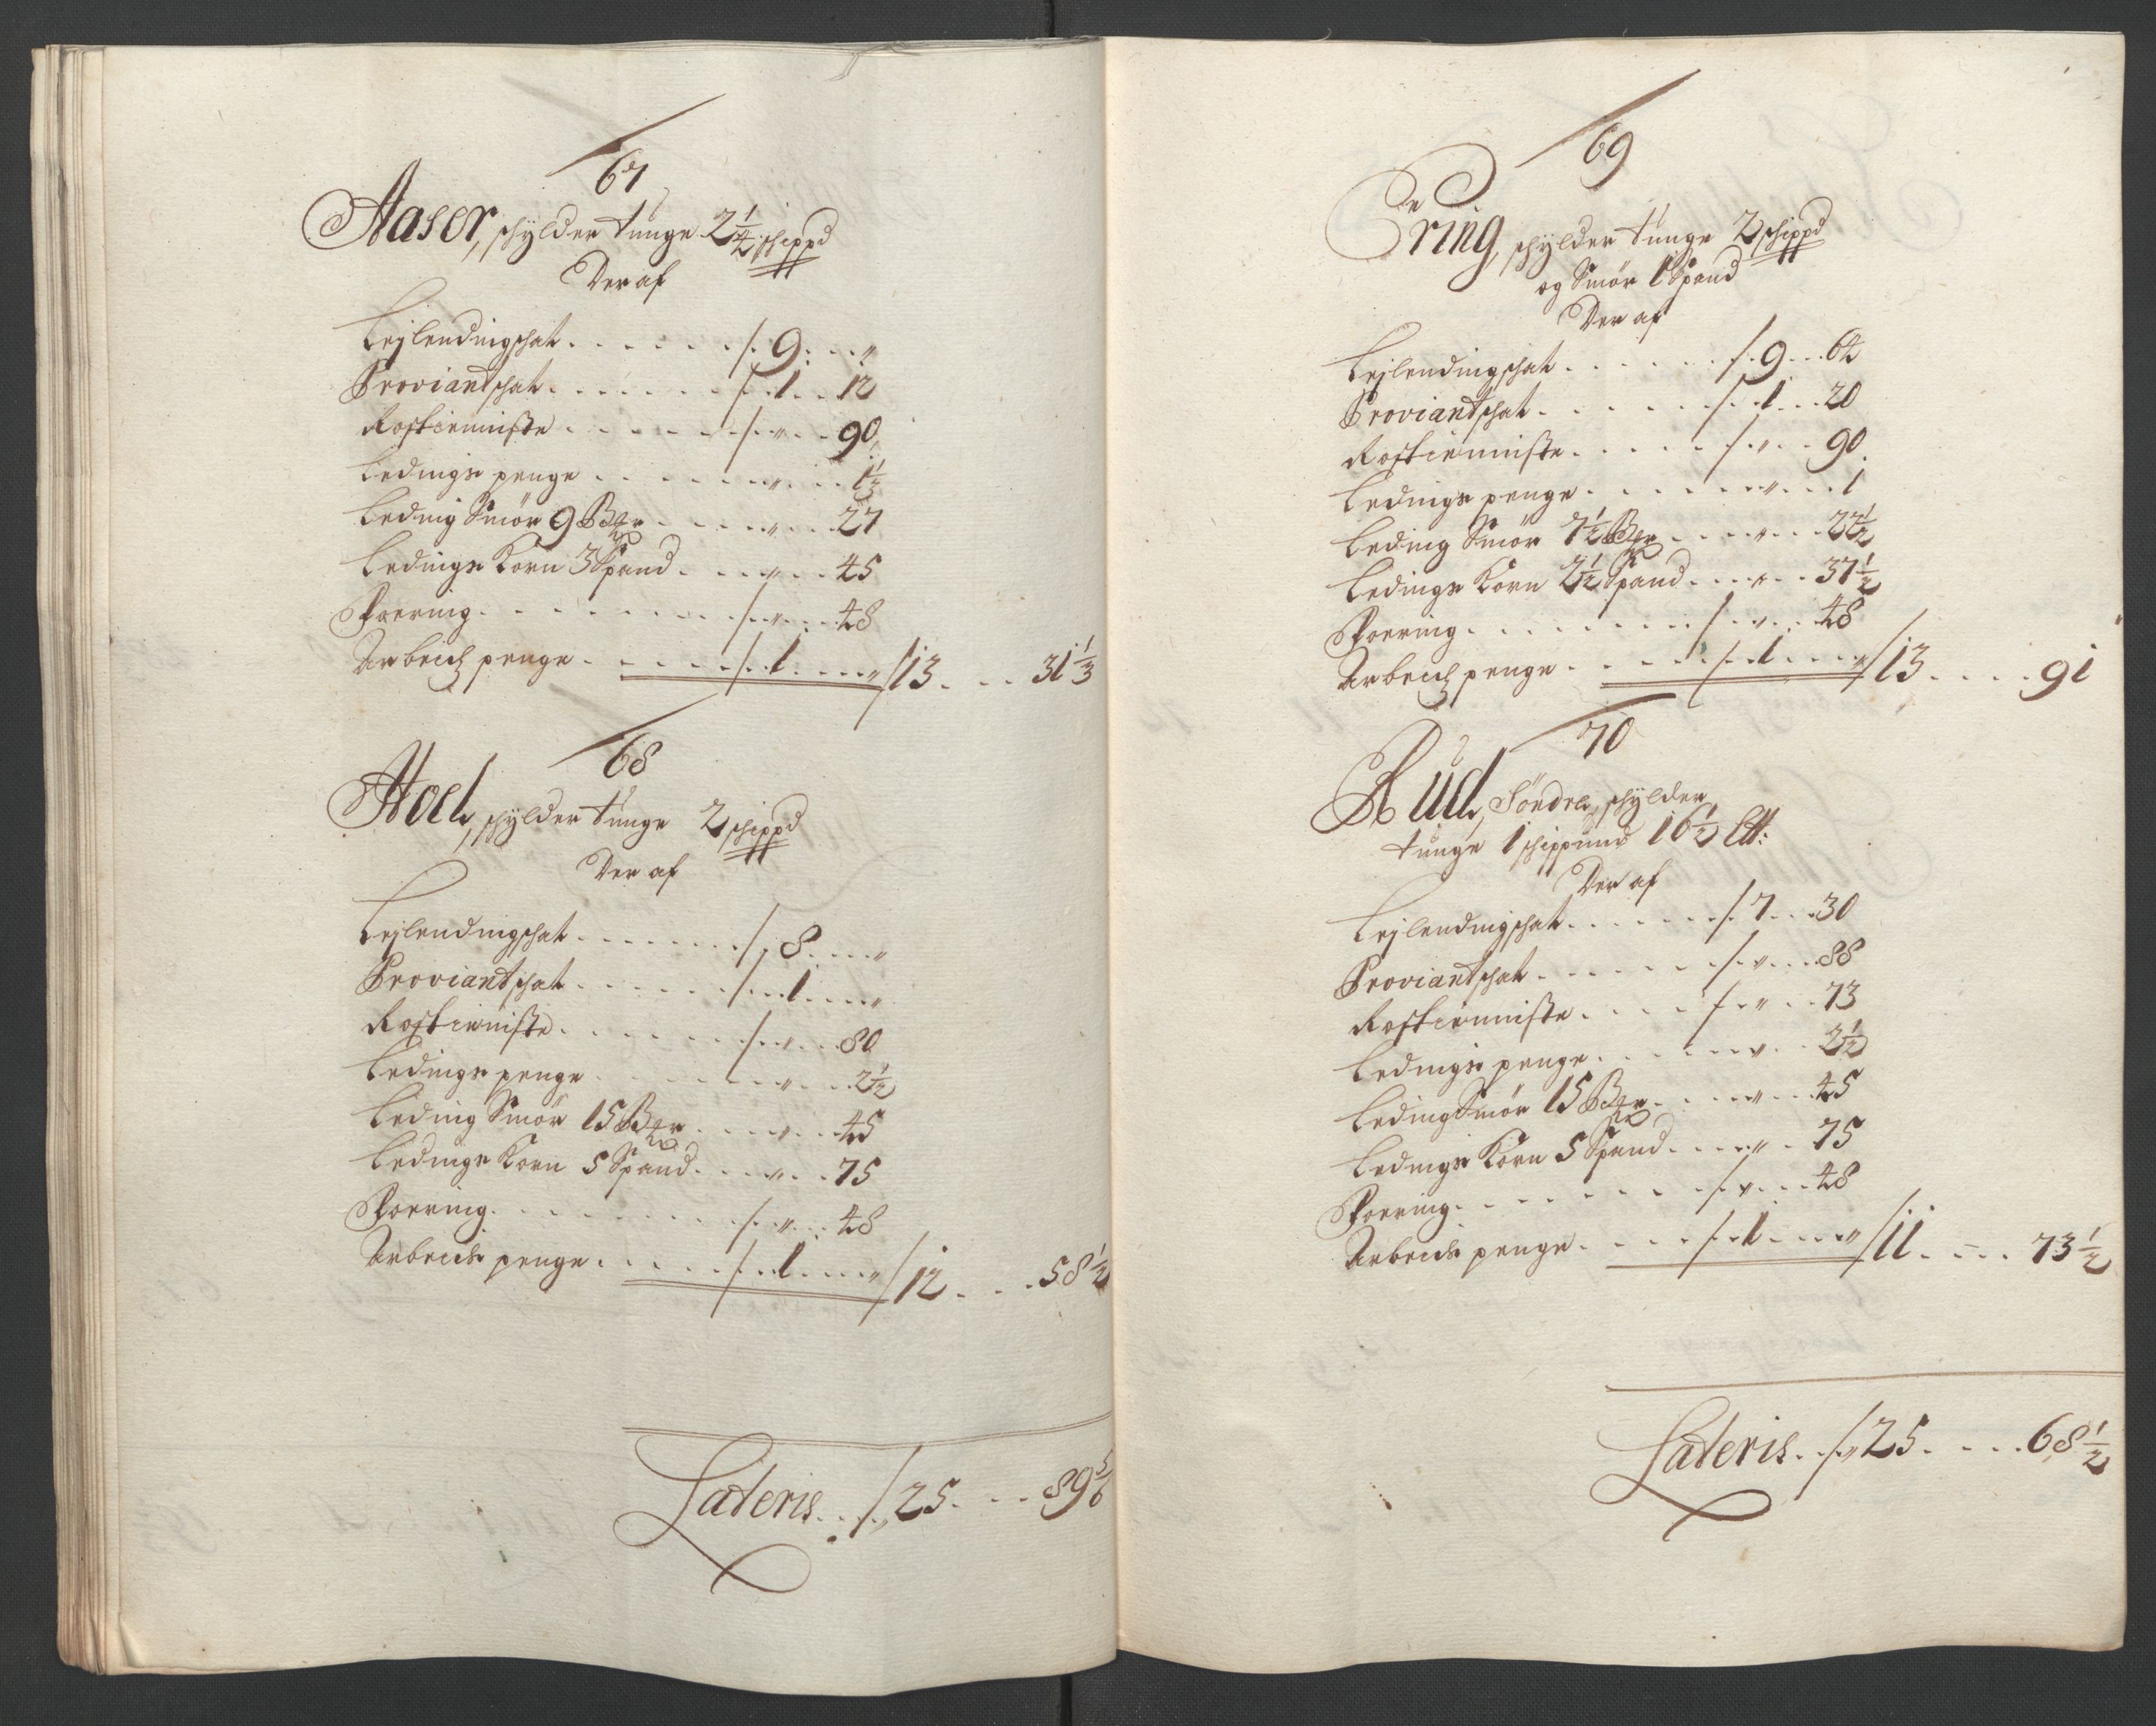 67
Aaser, schylder tunge 2 1/4 schippd
Der af
Lejlendingschat . . . . . . /. 9: . . . "
Proviantschat . . . . . . /. 1 . . 12
Rostieniste . . . . . . /. " . . 90
Ledings penge . . . . . . " . . . 1 1/3
Leding Smör 9 Bßr . . . . " . . . 27
Ledings Korn 3 Spand . . . " . . 45
Foering . . . . . . . . /. " . . . 48
Arbeids penge . . . . . /. 1 . . . . " /13 . . . 31 1/3
68
Hoel, schylder tunge 2 schippd
Der af
Lejlendingschat . . . . . . . /. 8 . . . . "
Proviantschat . . . . . . /. 1 . . . . "
Rostieniste . . . . . . /. " . . . 80
Ledings penge . . . . . . " . . . 2 1/2
Leding Smör 15 Bßr . . . . " . . . 45
Ledings Korn 5 Spand . . . " . . 75
Foering . . . . . . . . /. " . . . 48
Arbeids penge . . . . . /. 1 . . . . " /12 . . . 58 1/2
Lateris . . /. 25 . . . 89 5/6
69
Ering, schylder tunge 2 schippd
og Smör 1 Spand
Der af
Lejlendingschat . . . . . . /. 9 . . . 64
Proviantschat . . . . . . /. 1 . . . 20
Rostienniste . . . . . /. " . . . 90
Ledings penge . . . . . . " . . . 1
Leding Smör 7 1/2 Bßr . . . . " . . . 22 1/2
Ledings Korn 2 1/2 Spand . . . " . . 37 1/2
Foering . . . . . . . . /. " . . . 48
Arbeids penge . . . . . /. 1 . . . . " /13 . . . . 91
70
Rud, Söndre, schylder
tunge 1 schippund 16 1/2 Ltt:
Der af
Lejlendingschat . . . . . . /. 7 . . . 30
Proviantschat . . . . . . /. " . . . 88
Rostienniste . . . . /. " . . . 73
Ledings penge . . . . . . " . . . 2 1/2
Leding Smör 15 Bßr . . . . " . . . 45
Ledings Korn 5 Spand . . . . " . . 75
Foering . . . . . . . /. " . . . 48
Arbeids penge . . . . /. 1 . . . . " /11 . . . . 73 1/2
Lateris . . /. 25 . . . . 68 1/2